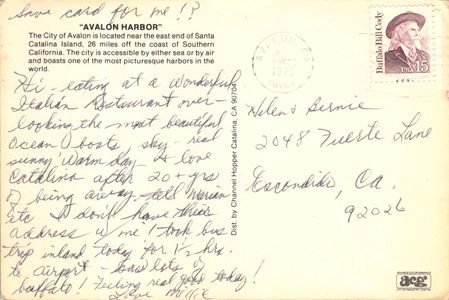 Save card for me!?
"AVALON HARBOR"
The City of Avalon is located near the east end of Santa
Catalina Island, 26 miles off the coast of Southern
California. The city is accessible by either sea or by air
and boasts one of the most picturesque harbors in the
world.
Hi - eating at a wonderful
Italian Restaurant over-
looking the most beautiful
Ocean, boats, sky - real
sunny warm day - I love
Catalina after 20 + yrs
of being away - tell Marian
etc I don't have their
address w me! I took bus
trip inland today for 1½ hrs.
to airport - saw lots of
buffalo! Feeling real good today!
Love Millie
Dist. by Channel Hopper Catalina, CA 90704
AVALON, CA
90704
Buffalo Bill Cody
USA 15
Helen & Bernie
2048 Fuerte Lane
Escondido, CA.
92026
acg